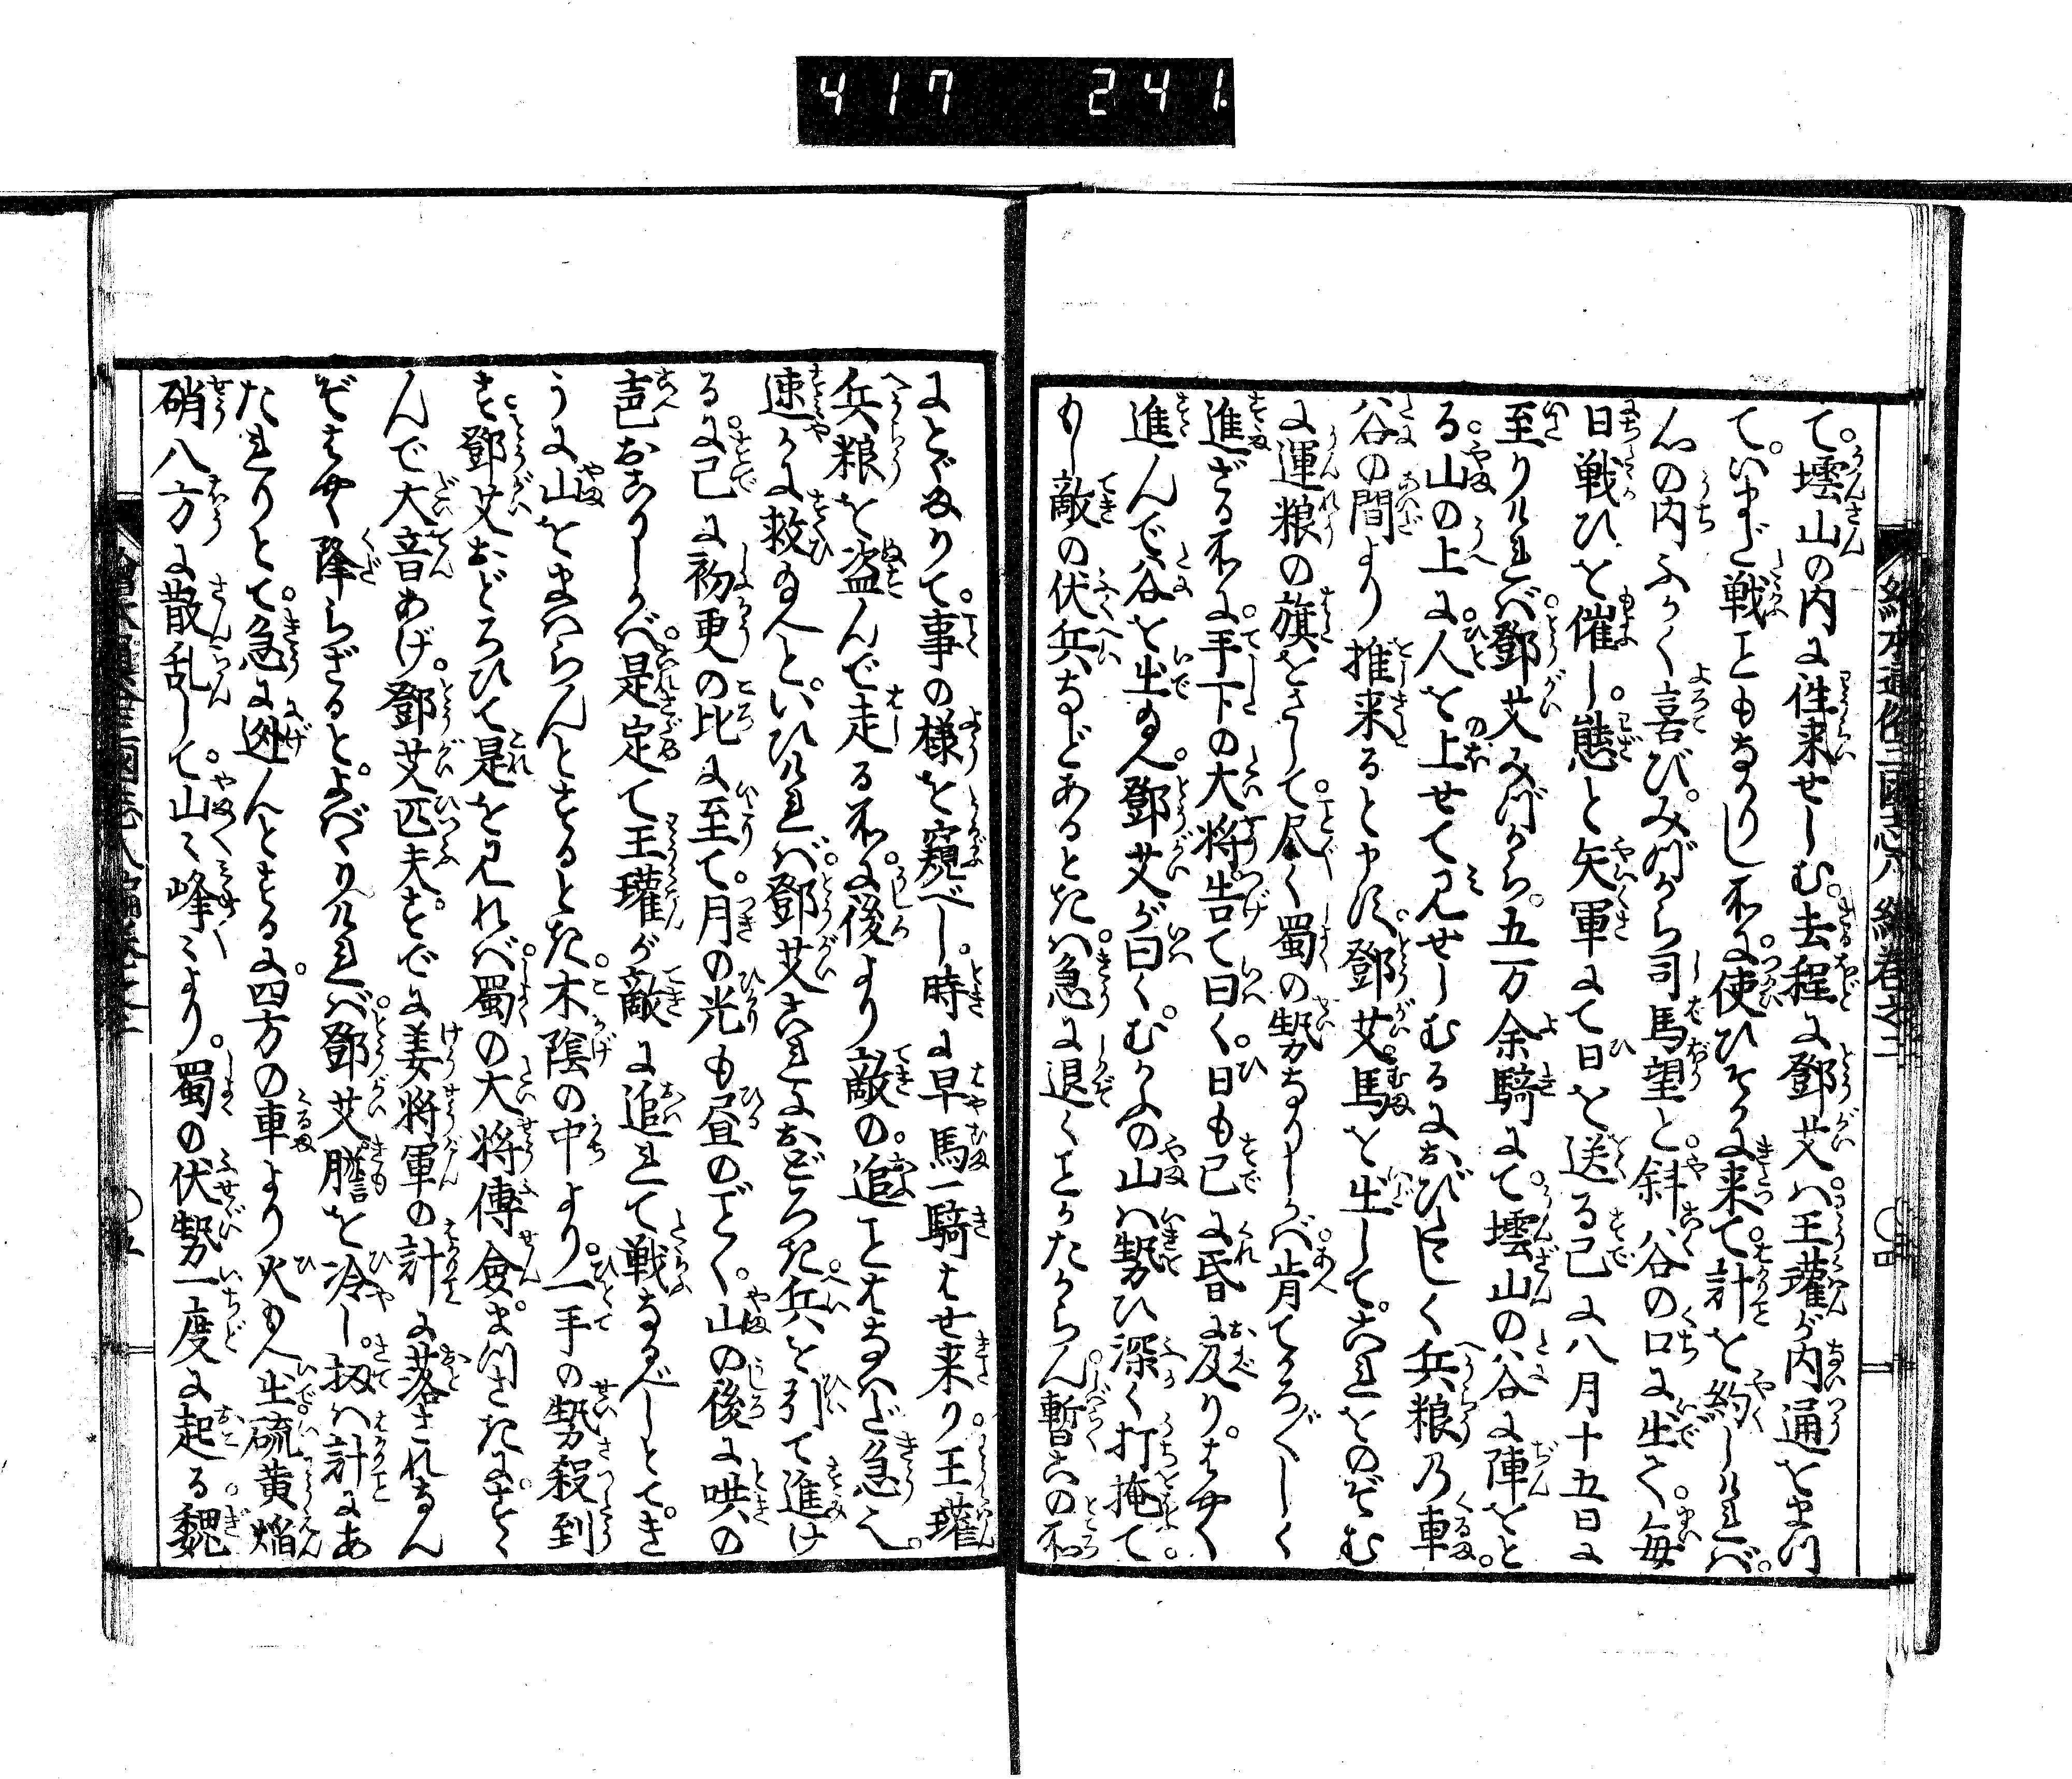 417 241
て。壜山の内に徃来せしむ。去程に鄧艾ハ。王瓘が内通をまつ
て。いまだ戦こともなかりし所に。使ひそかに来て。計を約しけれバ。
心の内ふかく喜び。みづから司馬望と。斜谷の口に出て。毎
日戦ひを催し。態と矢軍にて日を送る已に八月十五日に
至りけれバ。鄧艾みづから。五万余騎にて。壜山の谷に陣をと
る。山の上に人を上せて見せしむるにおびたゞしく兵粮の車。
谷の間より推来ると申す。鄧艾。馬を出して。これをのぞむ
に運粮の旗をさして。尽く蜀の勢なりしかバ。肯てちかづく
進ざる所に。手下の大将告て曰く。日も已に昏に及り。はやく
進んで。谷を出たまへ。鄧艾が曰く。むかふの山ハ勢ひ深く打掩て
もし敵の伏兵などあるときハ。急に退くことかたからん。暫くこの所
にとゞまりて。事の様を窺べし。時に早馬一騎はせ来り。王瓘
兵粮を盗んで走る所に。後より敵の。追ことはなハだ急也。
速かに救たまへと。いひけれバ。鄧艾これにおどろき。兵を引て進け
る に。已に初更の比に至て。月の光も昼のごとく。山の後に哄の
声おこりしかバ。是定て王瓘が敵に追れて戦なるべしとて。き
うに山をまハらんとするとき。木陰の中より。一手の勢殺到
す。鄧艾おどろひて是を見れバ。蜀の大将傅僉。まつさきにすゝ
んで大音あげ。鄧艾匹夫。すでに姜将軍の計に落されなん
ぞはやく降らざると。よバゝりけれバ。鄧艾膽を冷し。扨ハ計にあ
たれりとて。急に迯んとするに。四方の車より火もえ出。硫黄焔
硝八方に散乱して。山々峰々より。蜀の伏勢一度に起る。魏